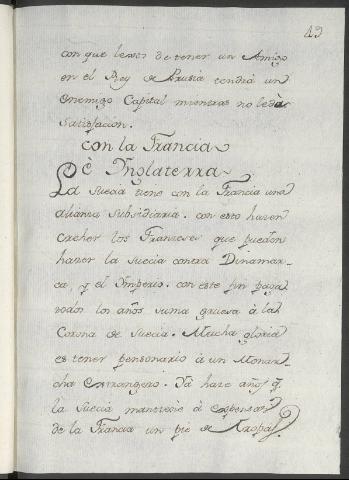 49
con que lexos de tener un Amigo
en el Rey de Prusia tendrá un
enemigo Capital mientras no le dá
satisfacion.
Con la Francia
è Ynglaterra
La Suecia tiene con la Francia una
alianza subsidiaria. con esto hazen
creher los Franceses que pueden
hazer la Suecia contra Dinamar-
ca, y el Imperio. con este fin paga
todos los años suma grueza à la
Corona de Suecia. Mucha gloria
es tener pensonario à un Monar-
cha extrangero. Yá haze años q
la Suecia mantiene à expensas
de la Francia un pie de tropas